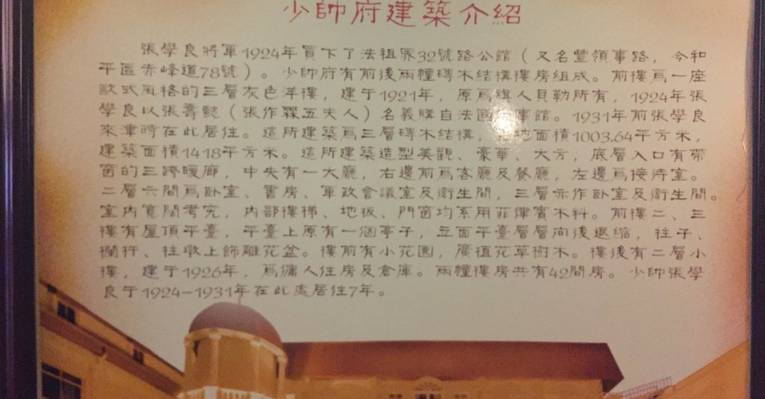 少帥府建築介紹
張學良將軍1924年買下了法租界32號路公館（又名豐領事路，今和
平區赤峰道78號）。少帥府有前後兩幢磚木結構樓房組成。前樓爲一座
歐式風格的三層灰色洋樓，建于1921年，原爲旗人貝勒所有，1924年張
學良以張壽懿（張作霖五夫人）名義購自法國領事館。1931年前張學良
來津時在此居住。這所建築爲三層磚木結構，地面積1003.64平方米，
建築面積1418平方米。這所建築造型美觀、豪華、大方，底層入口有帶
窗的三跨暖廊，中央有一大廳，右邊前爲客廳及餐廳，左邊爲接待室。
二層六間爲卧室、書房、軍政會議室及衛生間，三層亦作卧室及衛生間。
室内寬闊考究，内部樓梯、地板、門窗均系用菲律賓木料。前樓二、三
樓有屋頂平臺，平臺上原有一個亭子，立面平臺層層向後退縮，柱子、
欄杆、柱墩上飾雕花盆。樓前有小花園，廣植花草樹木。樓後有二層小
樓，建于1926年，爲傭人住房及倉庫。兩幢樓房共有42間房。少帥張學
良于1924-1931年在此處居住7年。